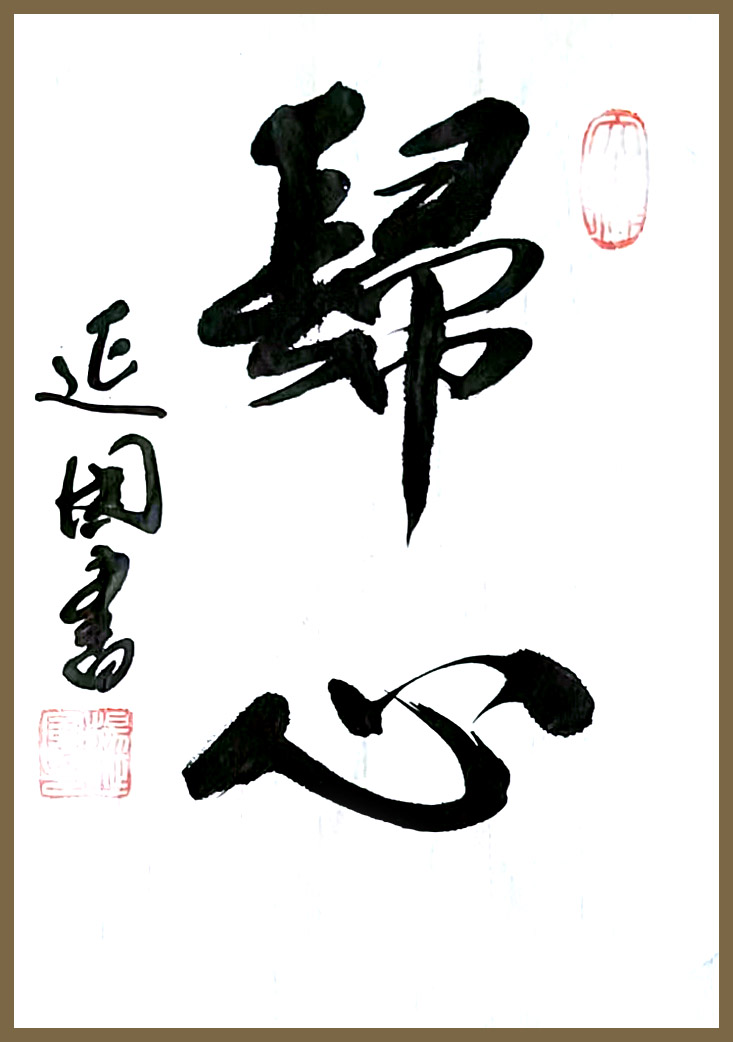 歸心
延国書